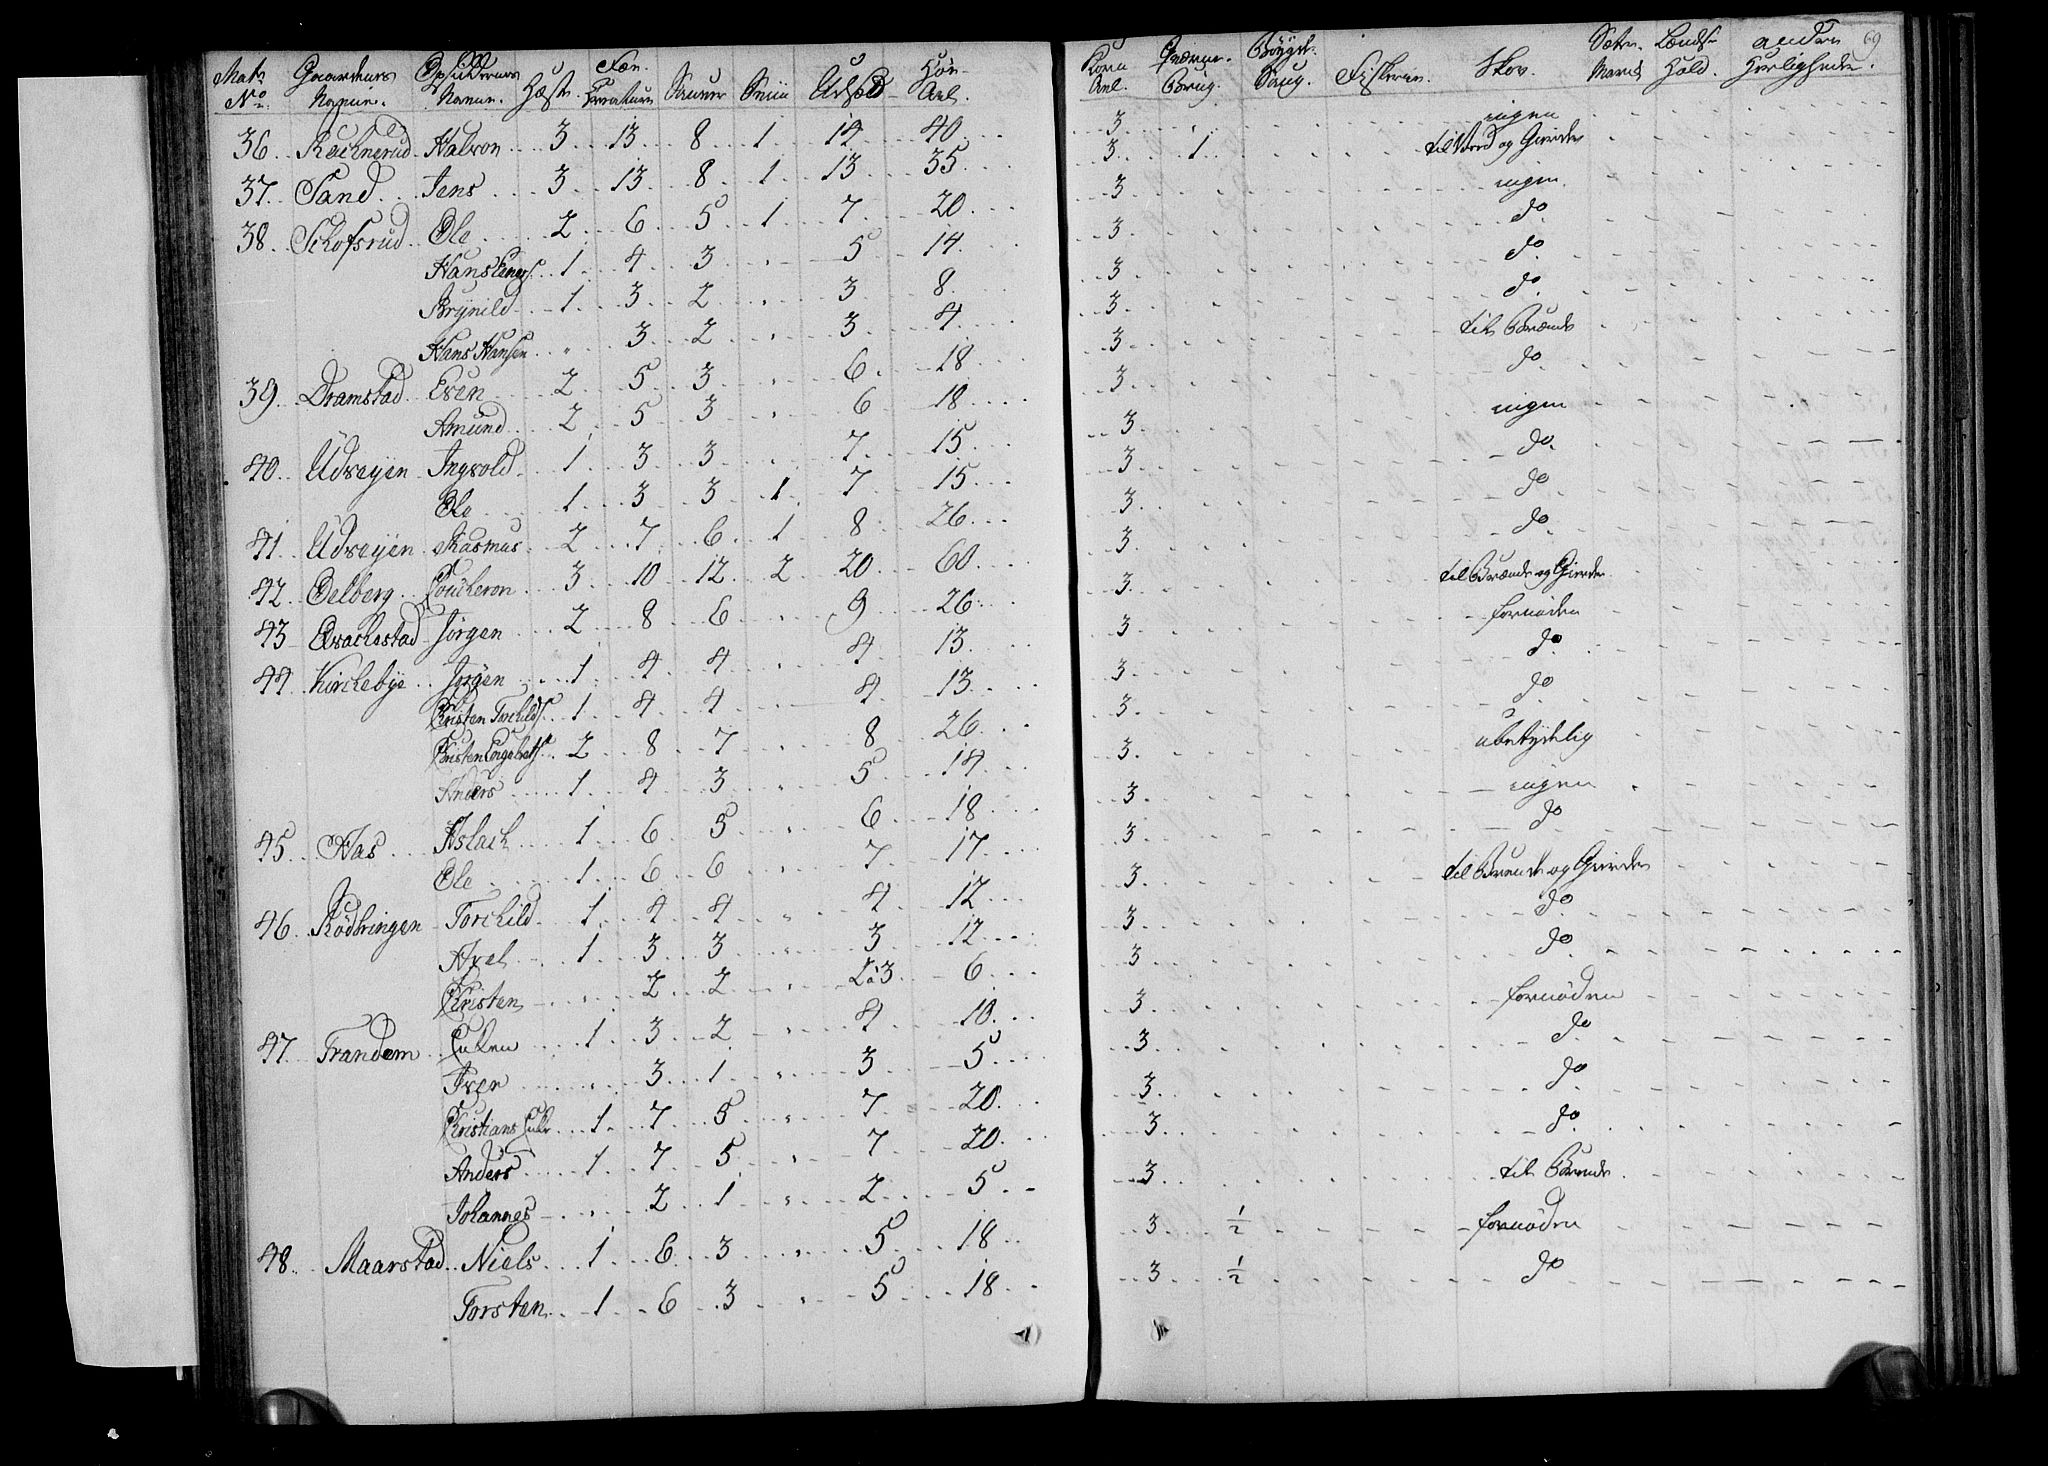 Matr No Gaardenes Navne. Opsiddernes Navne. Hæste. Fæe-Kreature Sauer Sviin Udsæd Høe-Avl. Korn Avl. Qværne-Brug. Bøygde-Saug. Fiskerie. Skov. Sæter-March Lænds-Hold. anden Herlighede. 69
36. Rachnerud Halvor 3 13 8 1 14 40 3 ingen
37. Sand Jens 3 13 8 1 13 35 3 1 til Ved og Gierde
38. Schofsrud Ole 2 6 5 1 7 20 3 ingen
Hans Einers. 1 4 3 " 5 14 3 do
Brynild 1 3 2 " 3 8 3 do
Hans Hansen " 3 2 " 3 4 3 do
39. Dramstad Even 2 5 3 " 6 18 3 til Brænde
Amund 2 5 3 " 6 18 3 do
40. Udveyen Ingvold 1 3 3 " 7 15 3 ingen
Ole 1 3 3 1 7 15 3 do
41. Udveyen Rasmus 2 7 6 1 8 26 3 do
42. Delberg Poucheron 3 10 12 2 20 60 3 do
43 Qvachestad Jørgen 2 8 6 " 9 26 3 til Brænde og Gierde
44 Kirchebye Jørgen 1 4 4 " 4 13 3 fornøden
Kristen Torchilds. 1 4 4 4 13 3 do
Kristen Engebrets. 2 8 7 " 8 26 3 do
Anders 1 4 3 " 5 14 3 ubetydelig
45 Aas Aslach 1 6 5 " 6 18 3 ingen
Ole 1 6 6 7 17 3 do
46. Rödhringen Torchild 1 4 4 " 4 12 3 til Brende og Gierde
Axel 1 3 3 " 3 12 3 do
Kristen " 2 2 " 2 à 3 6 3 do
47. Trandem Gulen 1 3 2 " 4 10 3 fornøden
Iver " 3 1 " 3 5 3 do
Kristians Enke 1 7 5 " 7 20 3 do
Anders 1 7 5 " 7 20 3 do
Johannes " 2 1 " 2 5 3 til Brende
48. Maarstad Niels 1 6 3 " 5 18 3 1/2 fornøden
Torsten 1 6 3 " 5 18 3 1/2 do